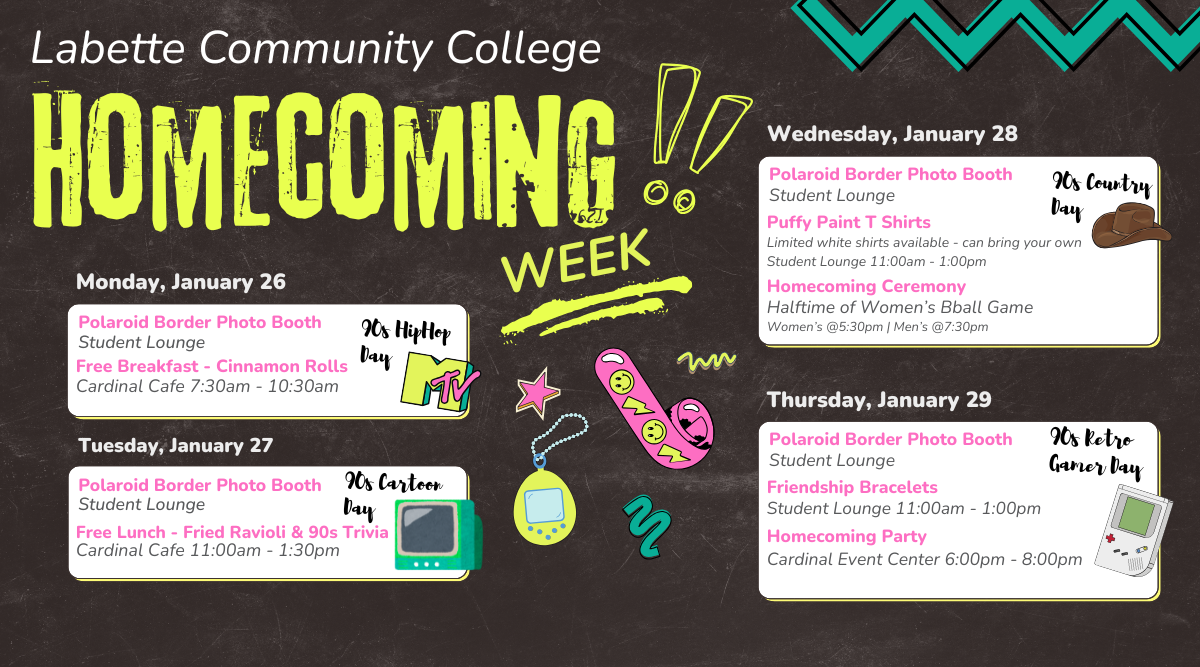 Labette Community College
HOMECOMING
WEEK
Monday, January 26
Polaroid Border Photo Booth
Student Lounge
Free Breakfast - Cinnamon Rolls
Cardinal Cafe 7:30am - 10:30am
90s HipHop
Day
MTV
Tuesday, January 27
Polaroid Border Photo Booth
Student Lounge
Free Lunch - Fried Ravioli & 90s Trivia
Cardinal Cafe 11:00am - 1:30pm
90s Cartoon
Day
Wednesday, January 28
Polaroid Border Photo Booth
Student Lounge
Puffy Paint T Shirts
Limited white shirts available - can bring your own
Student Lounge 11:00am - 1:00pm
Homecoming Ceremony
Halftime of Women's Bball Game
Women's @5:30pm | Men's @7:30pm
90s Country
Day
Thursday, January 29
Polaroid Border Photo Booth
Student Lounge
Friendship Bracelets
Student Lounge 11:00am - 1:00pm
Homecoming Party
Cardinal Event Center 6:00pm - 8:00pm
90s Retro
Gamer Day